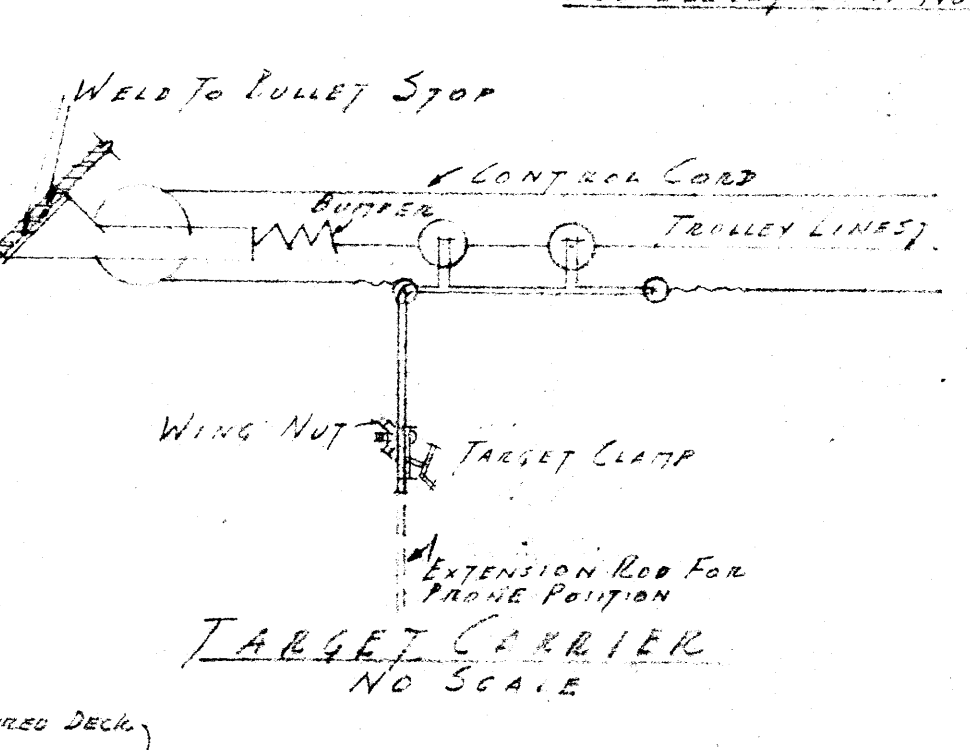 WELD TO BULLET STOP
CONTROL CORD
BUMPER
TROLLEY LINES
WING NUT
TARGET CLAMP
EXTENSION ROD FOR
PRONE POSITION
TARGET CARRIER
NO SCALE
DECK